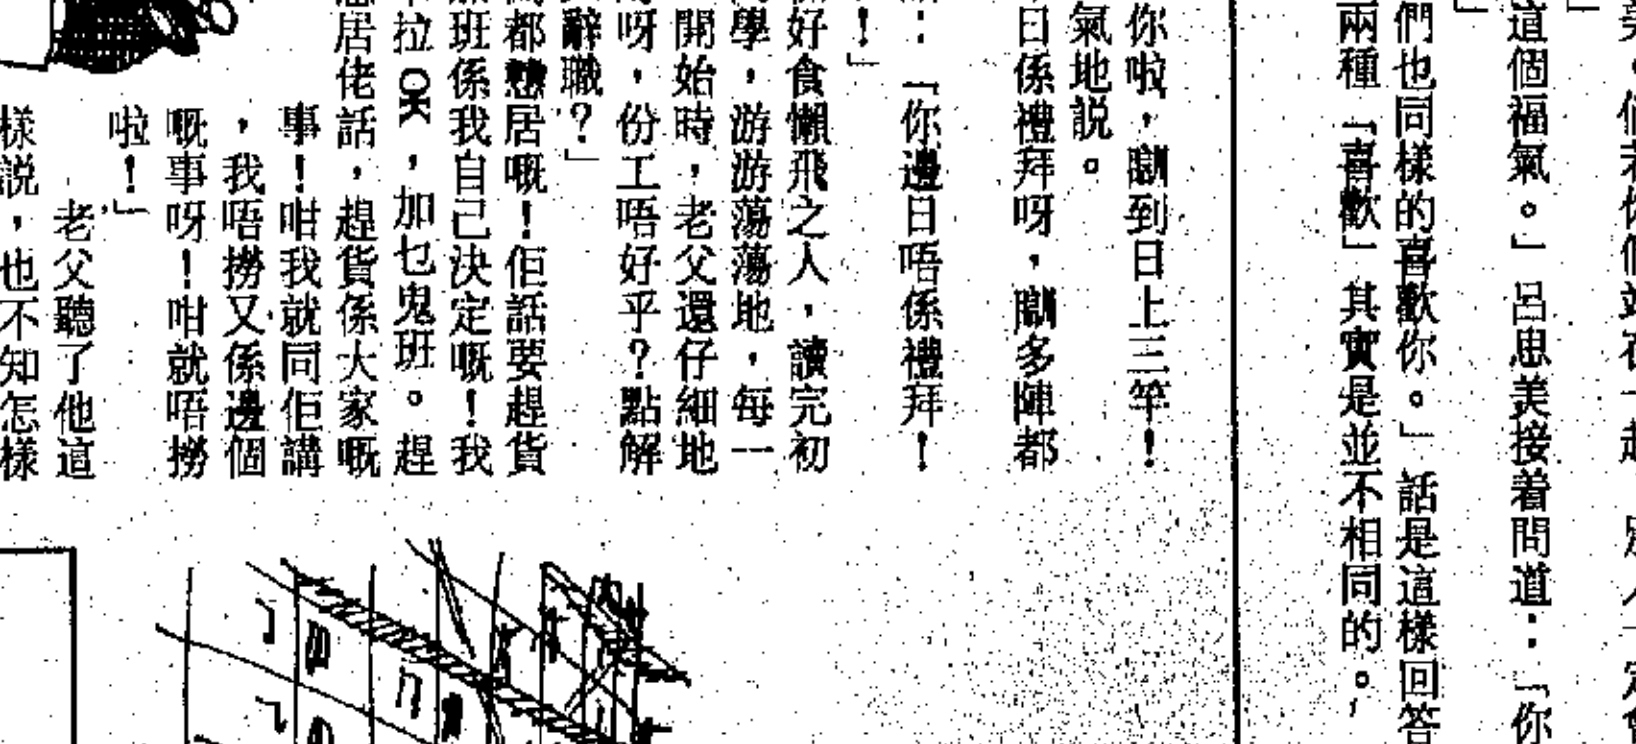 這個福氣。」呂思美接着問道：「你
們也同樣的喜歡你。」話是這樣回答
兩種「喜歡」其實是並不相同的。
你啦，瞓到日上三竿！
氣地説。
日係禮拜呀，瞓多陣都
！」
：「你邊日唔係禮拜！
好食懶飛之人，讀完初
學，游游蕩蕩地，每一
開始時，老父還仔細地
呀，份工唔好乎？點解
辭職？」
都戇居嘅！佢話要趕貨
班係我自己決定嘅！我
拉OK，加乜鬼班。趕
居佬話，趕貨係大家嘅
事！咁我就同佢講
，我唔撈又係邊個
嘅事呀！咁就唔撈
啦！」
老父聽了他這
樣説，也不知怎樣